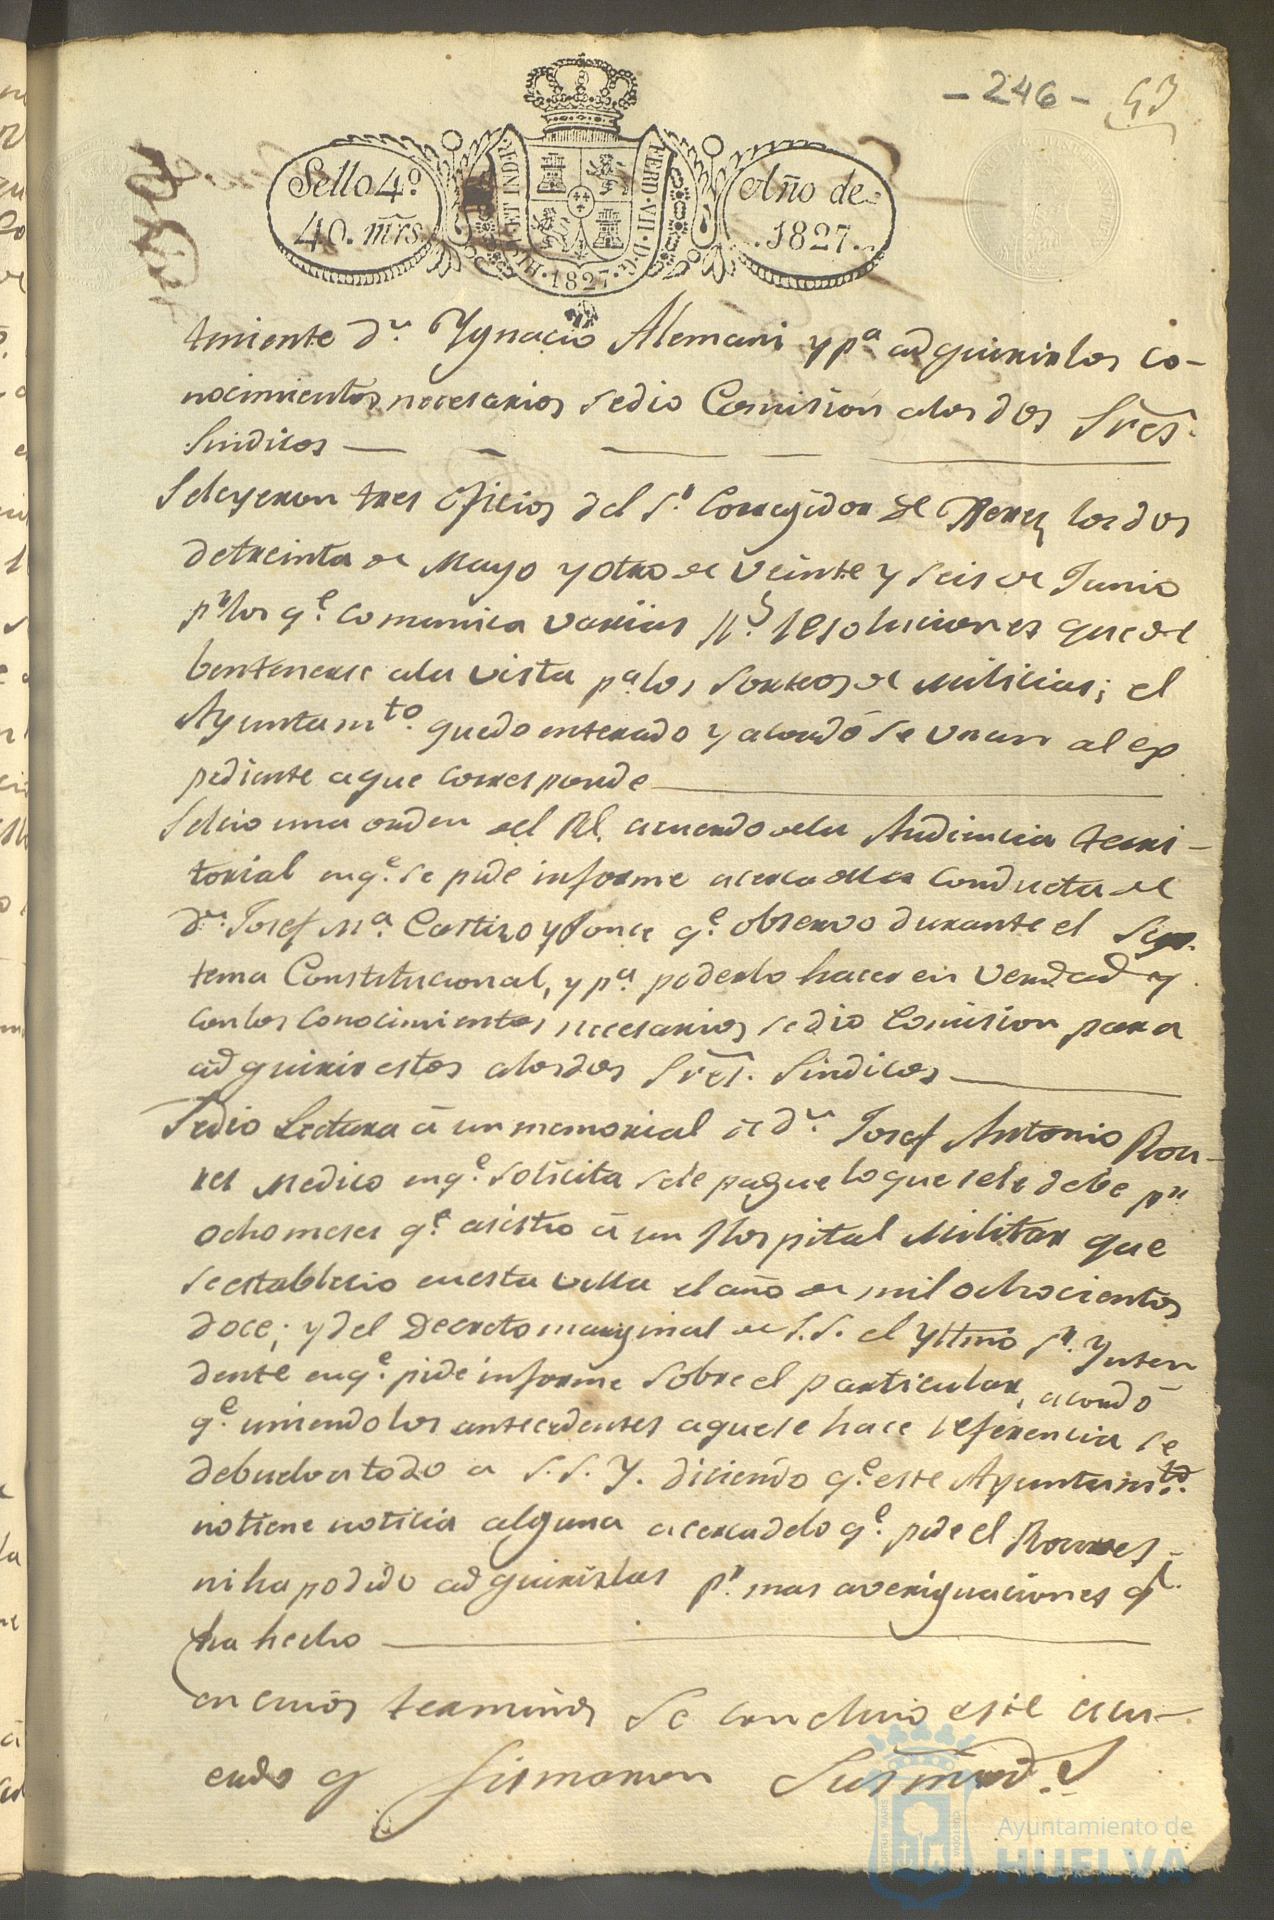 - 246 -
Sello 4º
40. mrs.
HISP. ET IND. R.
FERD. VII. D. G.
1827
Año de
1827.
tiniente Dn. Ygnacio Alemani y pa. adquirir los co-
nocimientos necesarios se dio Comision a los dos Sres.
Sindicos
Se leyeron tres oficios del Sr. Corregidor de Xerez los dos
de treinta de Mayo y otro de veinte y seis de Junio
pr. los qe. comunica varias Rs. resoluciones que de
ben tenerse a la vista pa. los sorteos de Milicias; el
Ayuntamto. quedo enterado y acordó se unan al ex
pediente a que corresponde
Se leio una orden del Rl. acuerdo de la Audiencia terri-
torial en qe. se pide informe acerca de la conducta de
Dn. Josef Ma. Castizo y Ponce qe. observo durante el Sys-
tema Constitucional, y pa. poderlo hacer en verdad y
con los conocimientos necesarios se dio Comision para
adquirir estos a los dos Sres. Sindicos
Se dio Lectura á un memorial de Dn. Josef Antonio Rou-
res Medico en qe. solicita se le pague lo que se le debe pr.
ocho meses qe. asistio á un Hospital Militar que
se establecio en esta Villa el año de mil ochocientos
doce; y del Decreto marginal de S.S. el Yltmo Sr. Ynten
dente en qe. pide informe sobre el particular, acordó
qe. uniendo los antecedentes a que se hace referencia se
debuelva todo a S.S.Y. diciendo qe. este Ayuntamto.
no tiene noticia alguna acerca de lo qe. pide el Roures
ni ha podido adquirirlas pr. mas averiguaciones qe.
ha hecho
en cuios terminos se concluio este acu-
erdo q firmaron Sus mrds.
Ayuntamiento de
HUELVA